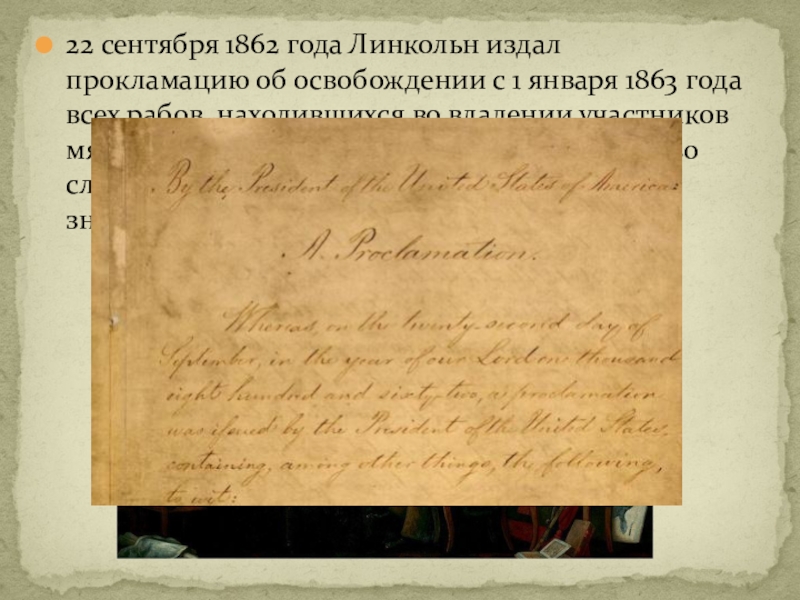 22 сентября 1862 года Линкольн издал
прокламацию об освобождении с 1 января 1863 года
всех рабов, находившихся во владении участников
By the President of the United States of America:
A Proclamation.
Whereas, on the twenty-second day of
September, in the year of our Lord one thousand
eight hundred and sixty-two, a proclamation
was issued by the President of the United States,
containing, among other things, the following,
to wit: